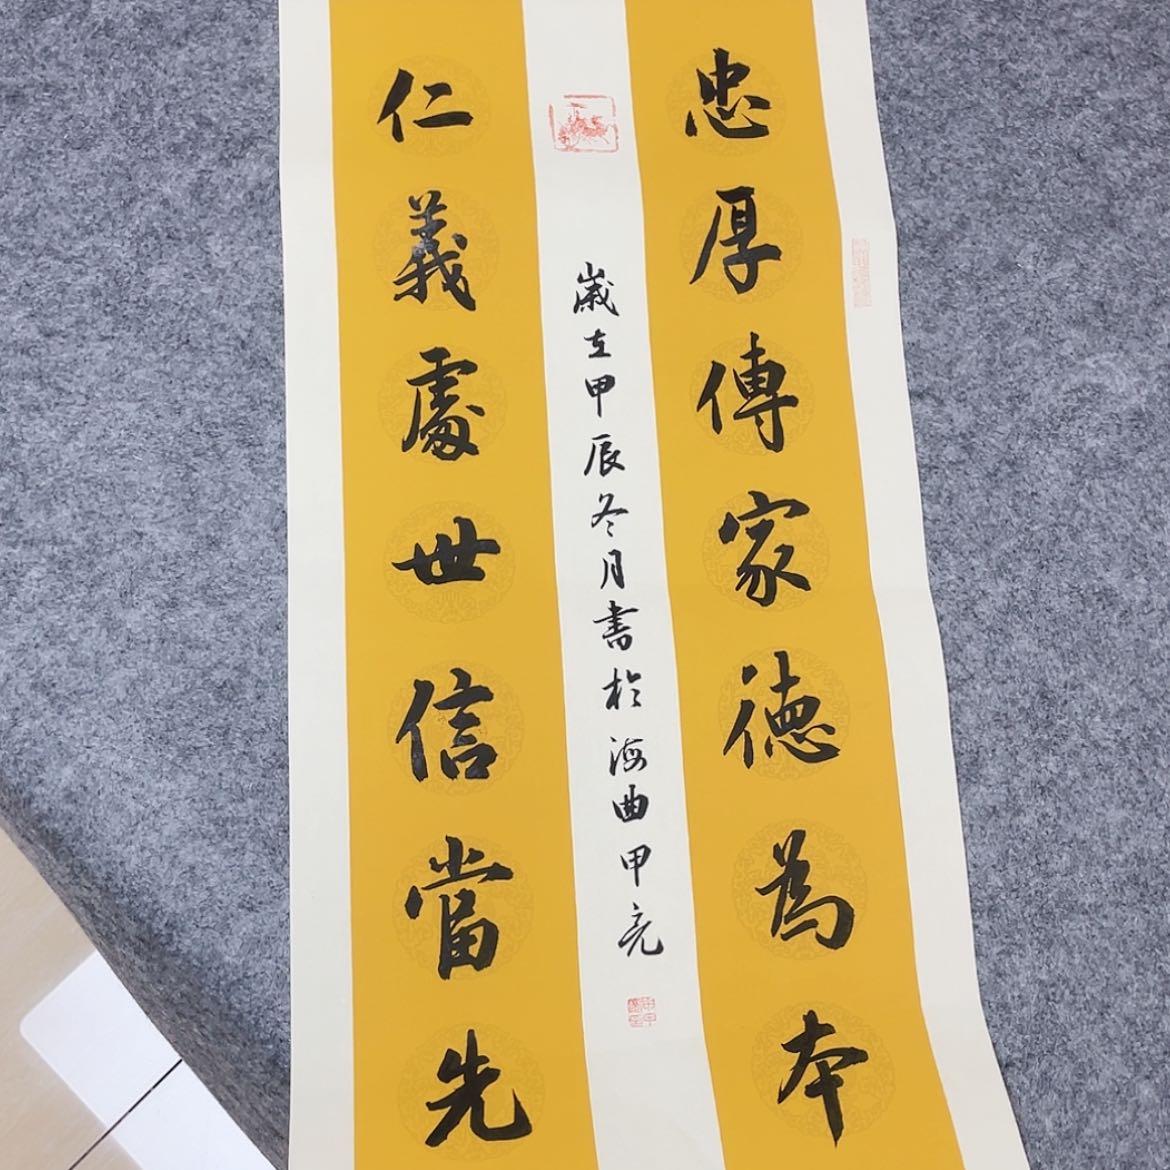 忠厚傳家德為本
歲在甲辰冬月書於海曲甲亮
仁義處世信當先